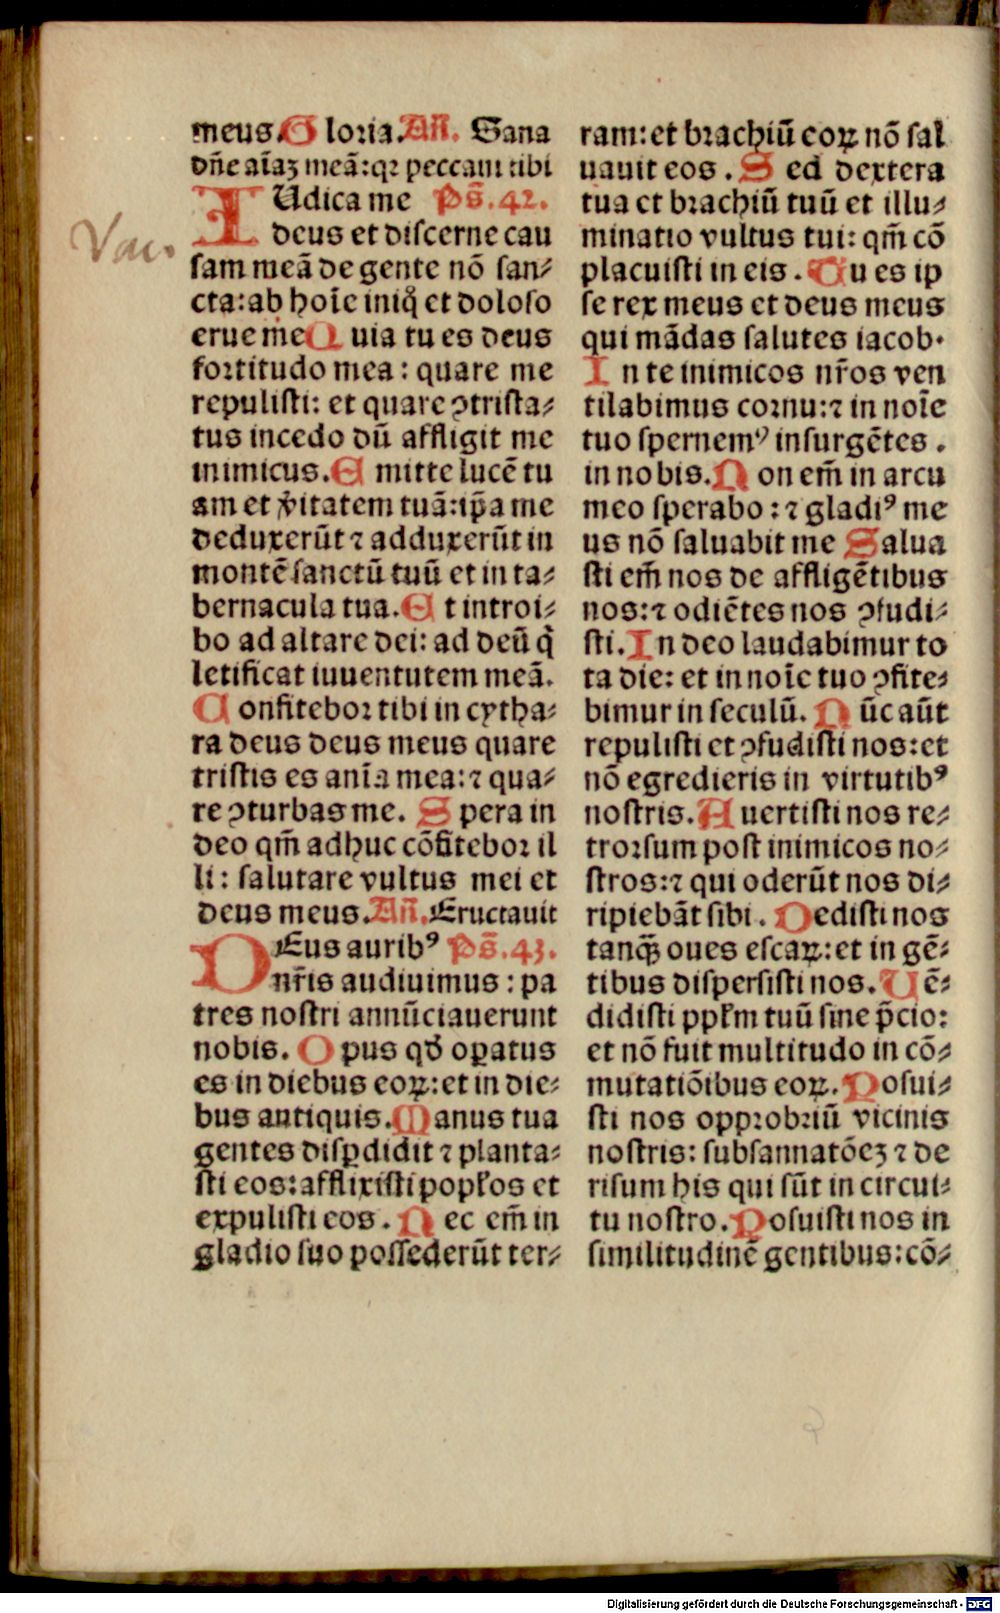 meus. Gloria. Añ. Sana
dñe aīaꝫ meā: qꝛ peccaui tibi
IUdica me Ps̄. 42.
deus et discerne cau
sam meā de gente nō san⸗
cta: ab hoīe iniqͦ et doloso
erue me Quia tu es deus
fortitudo mea: quare me
repulisti: et quare ꝯtrista⸗
tus incedo dū affligit me
inimicus. Emitte lucē tu
am et v̄itatem tuā: ip̄a me
deduxerūt ⁊ adduxerūt in
montē sanctū tuū et in ta⸗
bernacula tua. Et introi⸗
bo ad altare dei: ad deū qͥ
letificat iuuentutem meā.
Confitebor tibi in cytha⸗
ra deus deus meus quare
tristis es anīa mea: ⁊ qua⸗
re ꝯturbas me. Spera in
deo qm̄ adhuc cōfitebor il
li: salutare vultus mei et
deus meus. Añ. Eructauit
DEus auribꝰ Ps̄. 43.
nr̄is audiuimus: pa
tres nostri annūciauerunt
nobis. Opus qḋ oꝑatus
es in diebus eoꝝ: et in die⸗
bus antiquis. Manus tua
gentes disꝑdidit ⁊ planta⸗
sti eos: afflixisti popłos et
expulisti eos. Nec em̄ in
gladio suo possederūt ter⸗
ram: et brachiū eoꝝ nō sal
uauit eos. Sed dextera
tua et brachiū tuū et illu⸗
minatio vultus tui: qm̄ cō
placuisti in eis. Tu es ip
se rex meus et deus meus
qui mādas salutes iacob.
In te inimicos nr̄os ven
tilabimus cornu: ⁊ in noīe
tuo spernemꝰ insurgētes.
in nobis. Non em̄ in arcu
meo sperabo: ⁊ gladiꝰ me
us nō saluabit me Salua
sti em̄ nos de affligētibus
nos: ⁊ odiētes nos ꝯfudi⸗
sti. In deo laudabimur to
ta die: et in noīe tuo ꝯfite⸗
bimur in seculū. Nūc aūt
repulisti et ꝯfudisti nos: et
nō egredieris in virtutibꝰ
nostris. Auertisti nos re⸗
trorsum post inimicos no⸗
stros: ⁊ qui oderūt nos di⸗
ripiebāt sibi. Dedisti nos
tanqꝫ oues escaꝝ: et in gē⸗
tibus dispersisti nos. Uē⸗
didisti ppłm tuū sine p̄cio:
et nō fuit multitudo in cō⸗
mutatiōibus eoꝝ. Posui⸗
sti nos opprobriū vicinis
nostris: subsannatōeꝫ ⁊ de
risum his qui sūt in circui⸗
tu nostro. Posuisti nos in
similitudinē gentibus: cō⸗
Vac.
Digitalisierung gefördert durch die Deutsche Forschungsgemeinschaft - DFG